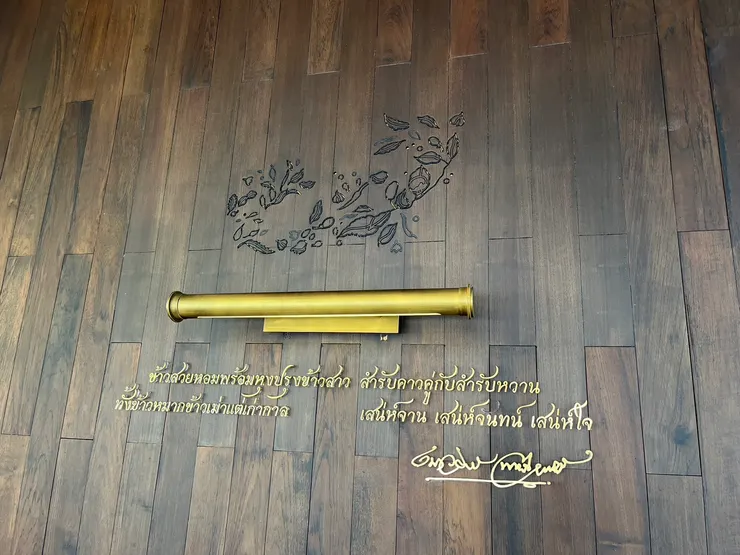 ข้าวสวยหอมพร้อมหุงปรุงข้าวสาว สำรับคาวคู่กับสำรับหวาน
ทั้งข้าวหมากข้าวเม่าแต่เก่ากาล เสน่ห์จาน เสน่ห์จันทน์ เสน่ห์ใจ